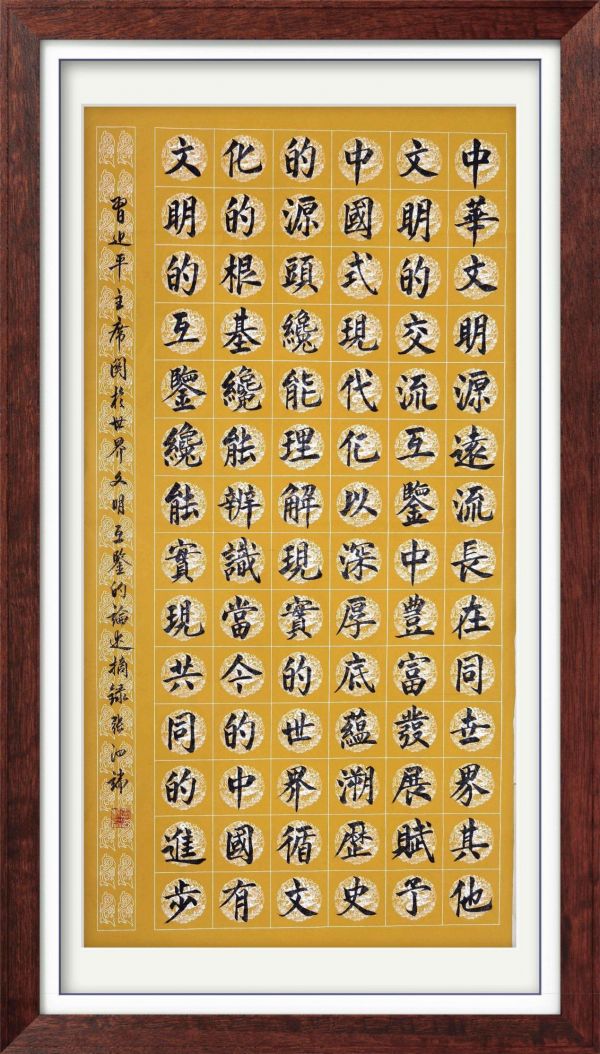 中華文明源遠流長在同世界其他
文明的交流互鑒中豐富發展賦予
中國式現代化以深厚底蘊溯歷史
的源頭纔能理解現實的世界循文
化的根基纔能辨識當今的中國有
文明的互鑒纔能實現共同的進步
習近平主席関於世界文明互鑒的論述摘録張泗